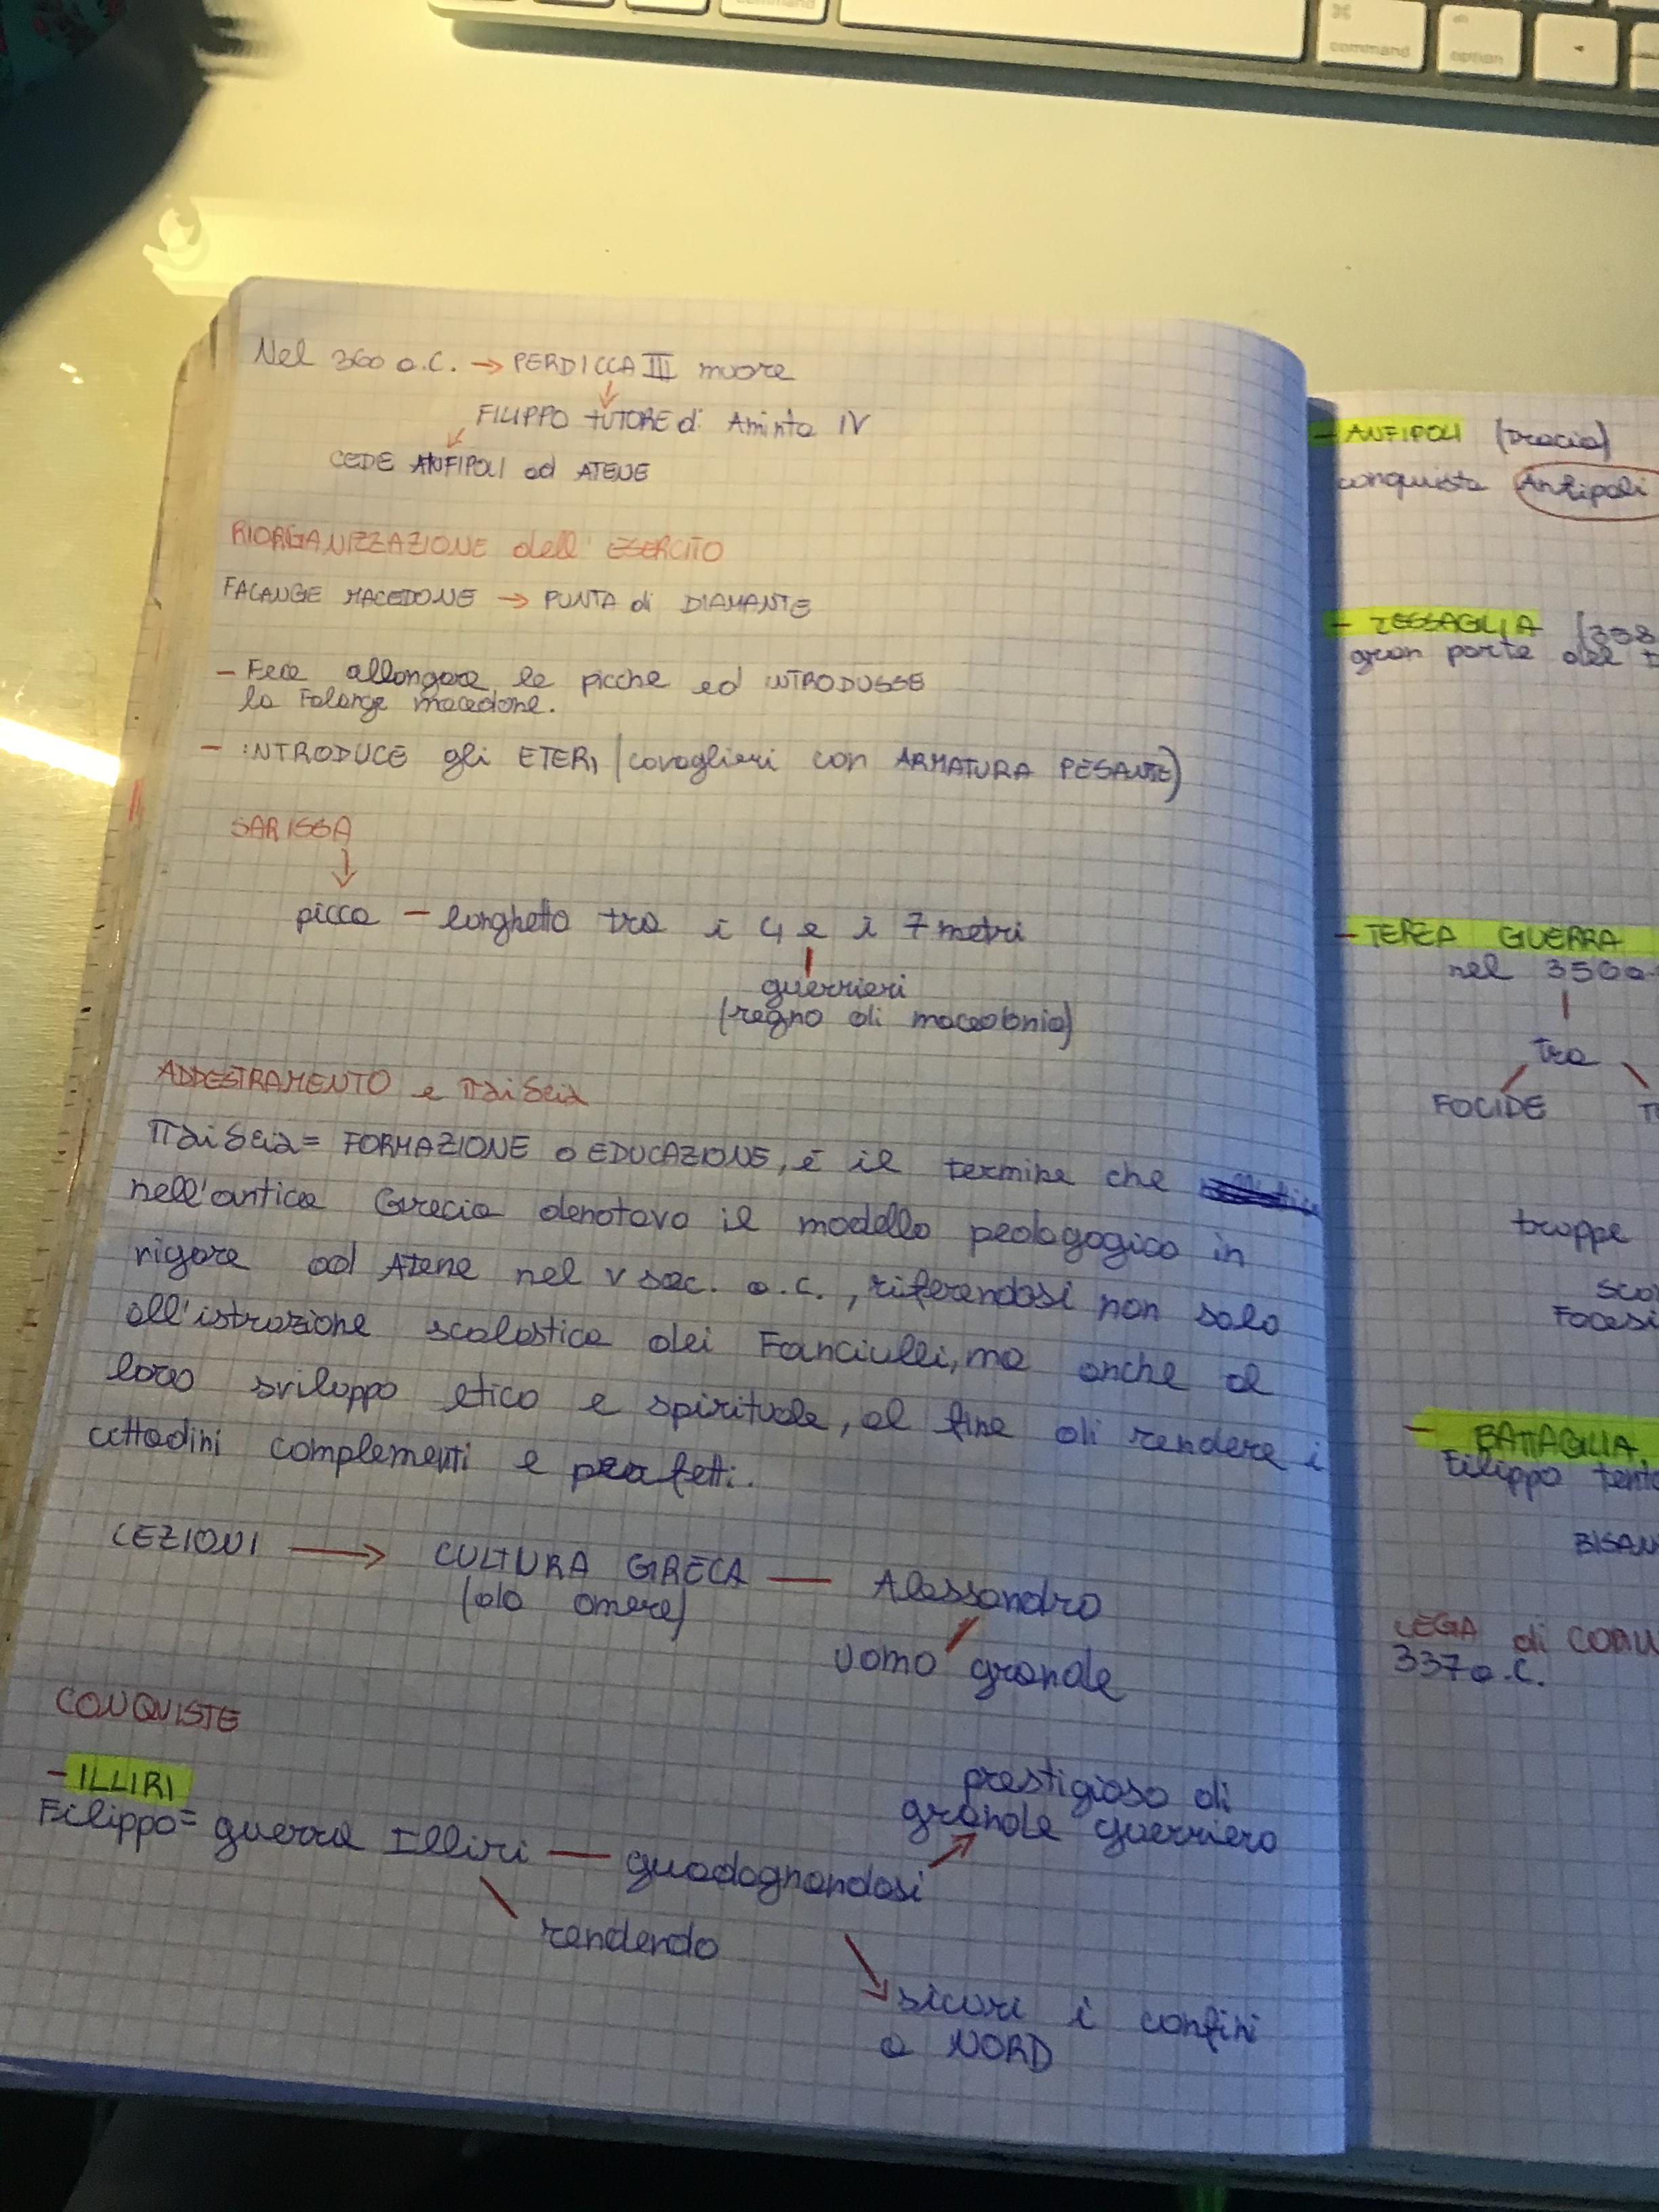 command
command
option
Nel 360 a.C. → PERDICCA III muore
FILIPPO TUTORE di Aminta IV
CEDE ANFIPOLI ad ATENE
RIORGANIZZAZIONE dell'ESERCITO
FALANGE MACEDONE → PUNTA di DIAMANTE
- Fece allongare le picche ed INTRODUSSE
la Falange macedone.
- INTRODUCE gli ETERI (cavaglieri con ARMATURA PESANTE)
SARISSA
picca - lunghetta tra i 4 e i 7 metri
guerrieri
(regno di macedonia)
ADDESTRAMENTO e παiδεia
Παiδεia = FORMAZIONE o EDUCAZIONE, è il termine che
nell'antica Grecia denotava il modello pedagogico in
vigore ad Atene nel V sec. a.C., riferendosi non solo
all'istrazione scolastica dei Fanciulli, ma anche al
loro sviluppo etico e spirituale, al fine di rendere i
cittadini complementi e perfetti.
LEZIONI → CULTURA GRECA — Alessandro
(da omero)
uomo grande
CONQUISTE
- ILLIRI
Filippo = guerra Illiri — guadagnandosi
prestigioso di
grande guerriero
rendendo
sicuri i confini
a NORD
- ANFIPOLI (Tracia)
conquista Anfipoli
- TESSAGLIA (358
gran parte del
- TERZA GUERRA
nel 356 a.
tra
FOCIDE
truppe
Focesi
- BATTAGLIA
Filippo
BISAN
LEGA di
337 a.C.